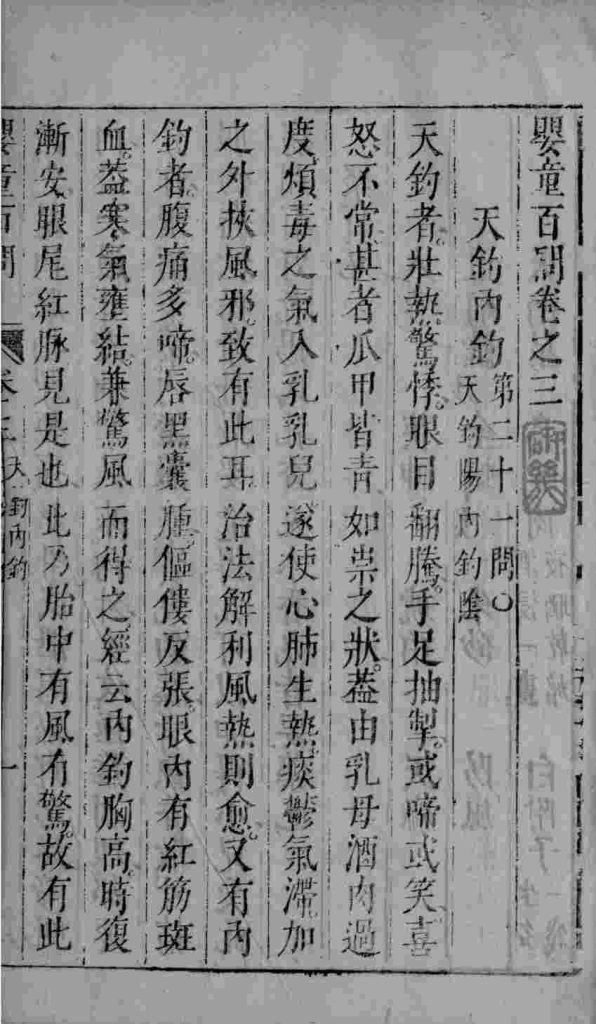 嬰童百問卷之三
天釣內釣
第二十一問○
天釣陽內釣陰
天釣者。壯熱驚悸。眼目翻騰。手足抽掣。或啼或笑喜
怒不常。甚者瓜甲皆青如祟之狀。蓋由乳母酒肉過
度。煩毒之氣入乳乳兒遂使心肺生熱。痰鬱氣滯。加
之外挾風邪。致有此耳治法解利風熱則愈。又有內
釣者。腹痛多啼。唇黑囊腫傴僂反張。眼內有紅筋斑
血。蓋寒氣壅結。兼驚風而得之。經云內釣胸高。時復
漸安眼尾紅脉見是也此乃胎中有風有驚。故有此
嬰童百問
卷之三
天釣內釣
一